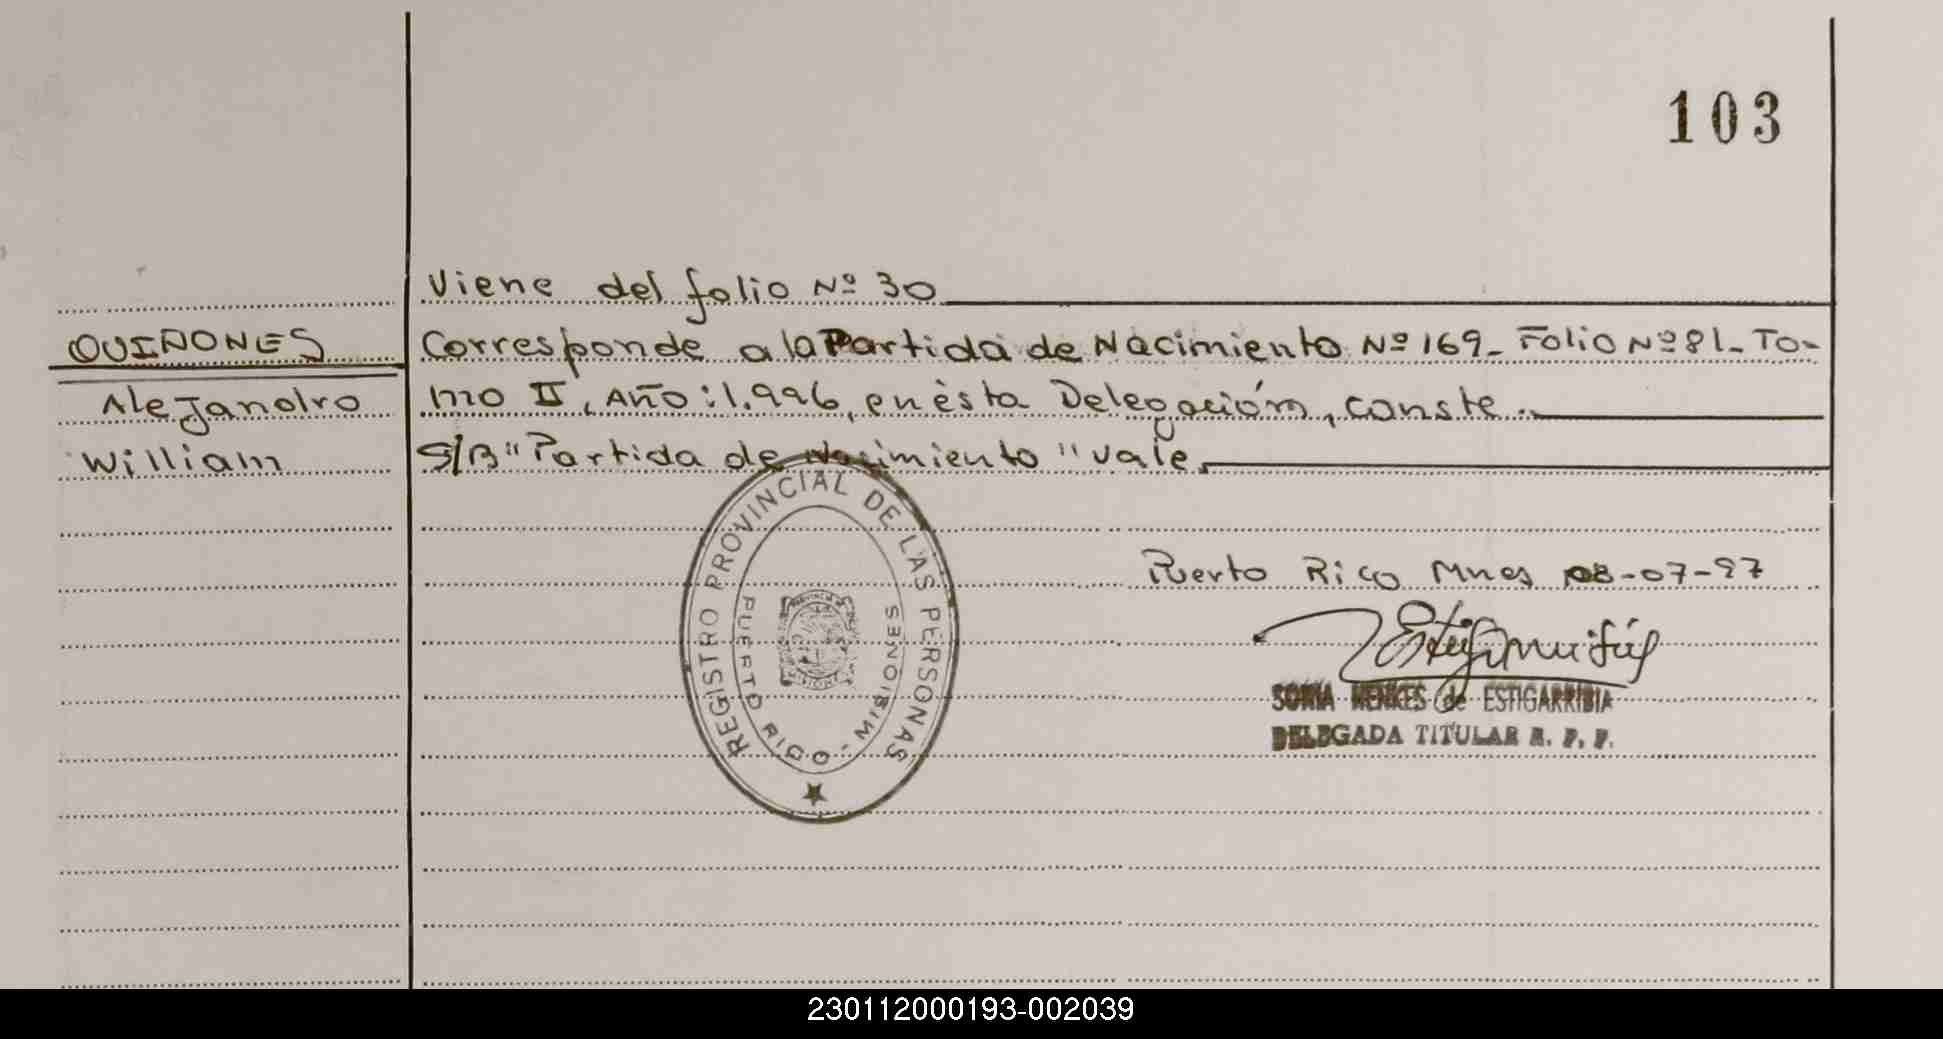 103
Viene del folio Nº 30
QUIÑONES
Corresponde a la Partida de Nacimiento Nº 169_ Folio Nº 81_ To-
Alejandro
mo II, Año: 1.996, en èsta Delegación, conste._
William
S/B "Partida de Nacimiento" vale_
REGISTRO PROVINCIAL DE LAS PERSONAS
PUERTO RICO - MISIONES
Puerto Rico Mnes 08-07-97
SONIA MENKES de ESTIGARRIBIA
DELEGADA TITULAR R. P. P.
230112000193-002039